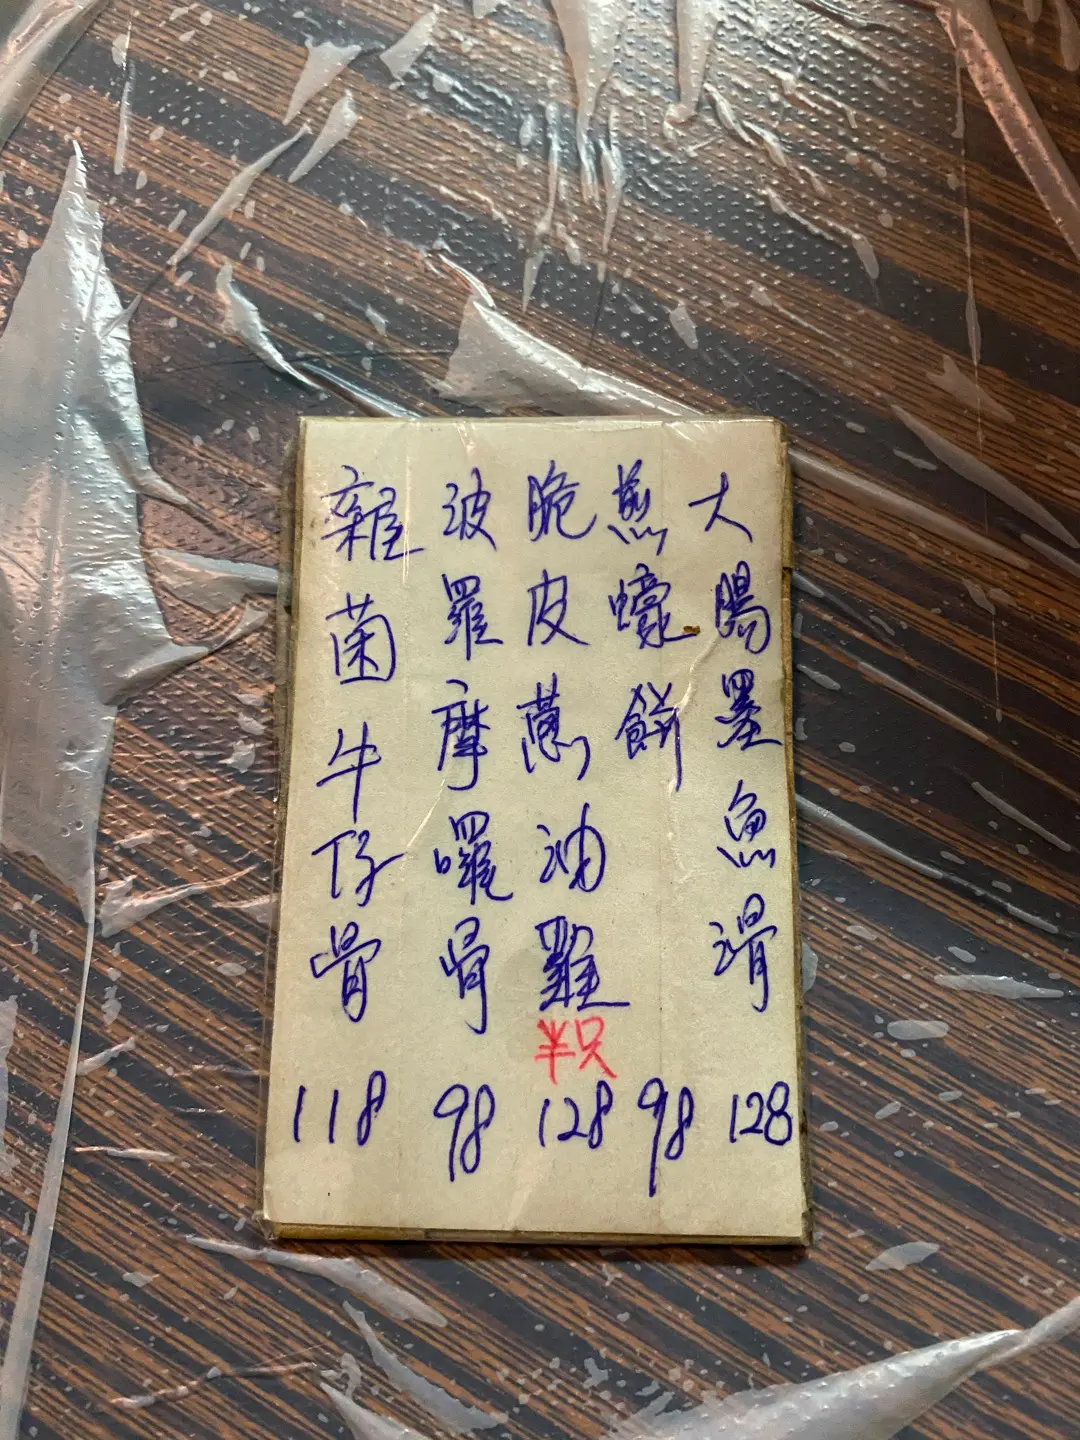 大腸墨魚滑
128
煎蠔餅
98
脆皮蔥油雞
半只
128
波羅摩囉骨
98
雜菌牛仔骨
118